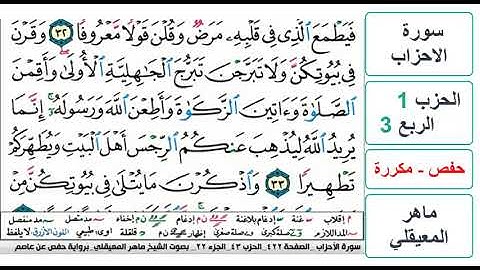 فَيَطْمَعَ ٱلَّذِى فِى قَلْبِهِۦ مَرَضٌ وَقُلْنَ قَوْلًا مَّعْرُوفًا ٣٢ وَقَرْنَ
فِى بُيُوتِكُنَّ وَلَا تَبَرَّجْنَ تَبَرُّجَ ٱلْجَٰهِلِيَّةِ ٱلْأُولَىٰ وَأَقِمْنَ
ٱلصَّلَوٰةَ وَءَاتِينَ ٱلزَّكَوٰةَ وَأَطِعْنَ ٱللَّهَ وَرَسُولَهُۥٓ إِنَّمَا
يُرِيدُ ٱللَّهُ لِيُذْهِبَ عَنكُمُ ٱلرِّجْسَ أَهْلَ ٱلْبَيْتِ وَيُطَهِّرَكُمْ
تَطْهِيرًا ٣٣ وَٱذْكُرْنَ مَا يُتْلَىٰ فِى بُيُوتِكُنَّ مِنْ
سورة الأحزاب - الصفحة ٤٢٢ - الحزب ٤٣ - الجزء ٢٢ - بصوت الشيخ ماهر المعيقلي - برواية حفص عن عاصم
سورة
الاحزاب
الحزب 1
الربع 3
حفص - مكررة
ماهر
المعيقلي